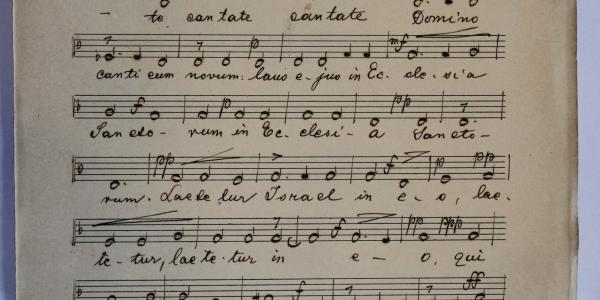 – te cantate cantate Domino
mf
canti cum novum: laus e-jus in Ec. cle. si'a
f p pp
Sancto- rum in Ec. clesi- a Sancto-
pp f p pp
rum. Laete tur Israel in e- o, lae.
f pp ppp
te-tur, lae te-tur in e - o, qui
ff